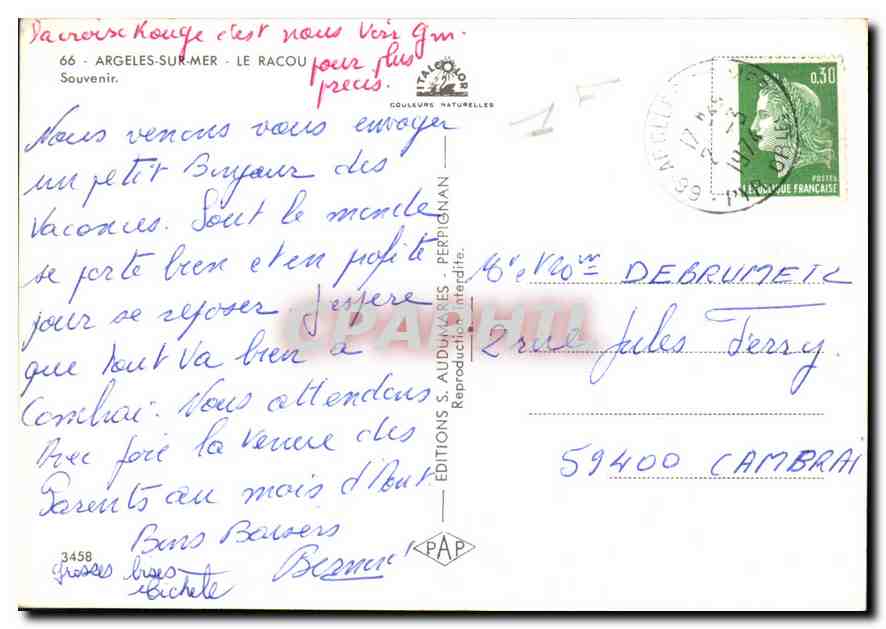 La croix Rouge c'est nous Voir Gm.
pour plus
précis.
66 - ARGELES-SUR-MER - LE RACOU
Souvenir.
ITALCOLOR
COULEURS NATURELLES
Nous venons vous envoyer
un petit Bonjour des
Vacances. Tout le monde
se porte bien et en profite
pour se reposer. J'espère
que tout va bien à
Cambrai. Nous attendons
Avec joie la venue des
Parents au mois d'Aout.
Bons Baisers
3458
grosses bises
Michele
EDITIONS S. AUDUMARES - PERPIGNAN
Reproduction interdite.
PAP
1F
0,30
POSTES
REPUBLIQUE FRANÇAISE
66 ARGELES
PYR ORLES
17 H
1974
CPAPHIL
Mr et Mme DEBRUMETZ
2 rue Jules Ferry.
59400 CAMBRAI